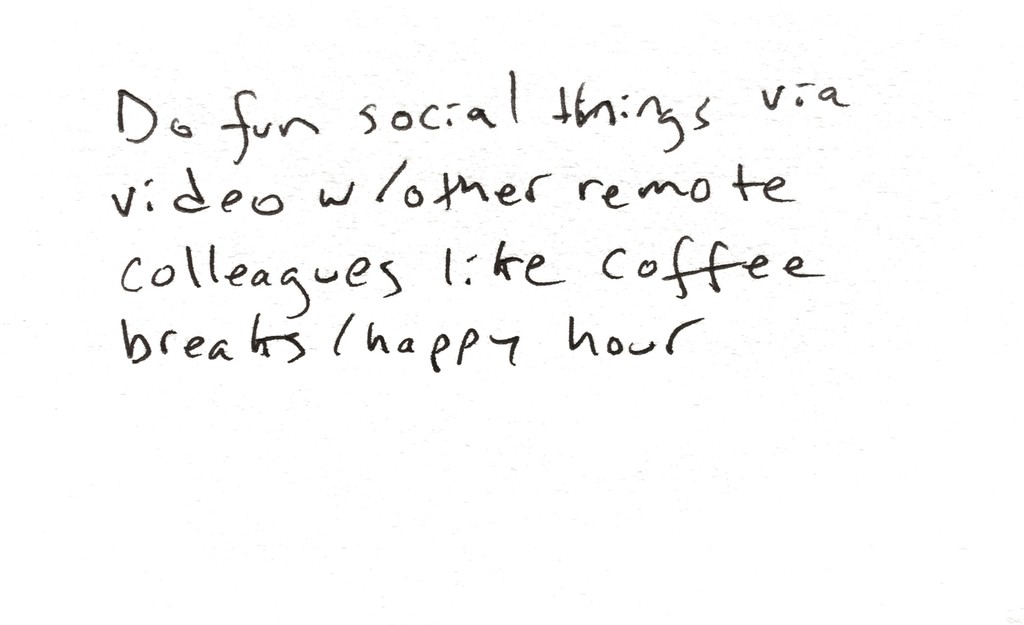 Do fun social things via
video w/other remote
colleagues like coffee
breaks/happy hour